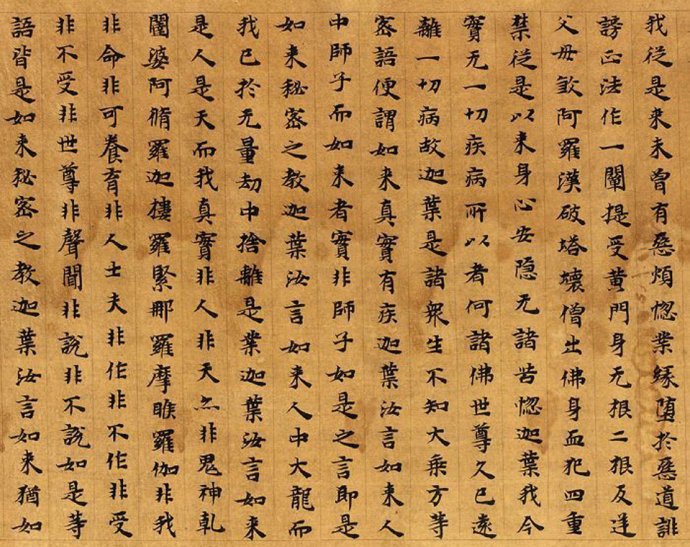 我從是来未曾有惡煩惱業緣墮於惡道誹
謗正法作一闡提受黃門身无根二根反逆
父母煞阿羅漢破塔壞僧出佛身血犯四重
禁從是以来身心安隱无諸苦惱迦葉我今
實无一切疾病所以者何諸佛世尊久已遠
離一切病故迦葉是諸衆生不知大乘方等
密語便謂如来真實有疾迦葉汝言如来人
中師子而如来者實非師子如是之言即是
如来秘密之教迦葉汝言如来人中大龍而
我已於无量劫中捨離是業迦葉汝言如来
是人是天而我真實非人非天亦非鬼神乹
闥婆阿脩羅迦樓羅緊那羅摩睺羅伽非我
非命非可養育非人士夫非作非不作非受
非不受非世尊非聲聞非說非不說如是等
語皆是如来秘密之教迦葉汝言如来猶如